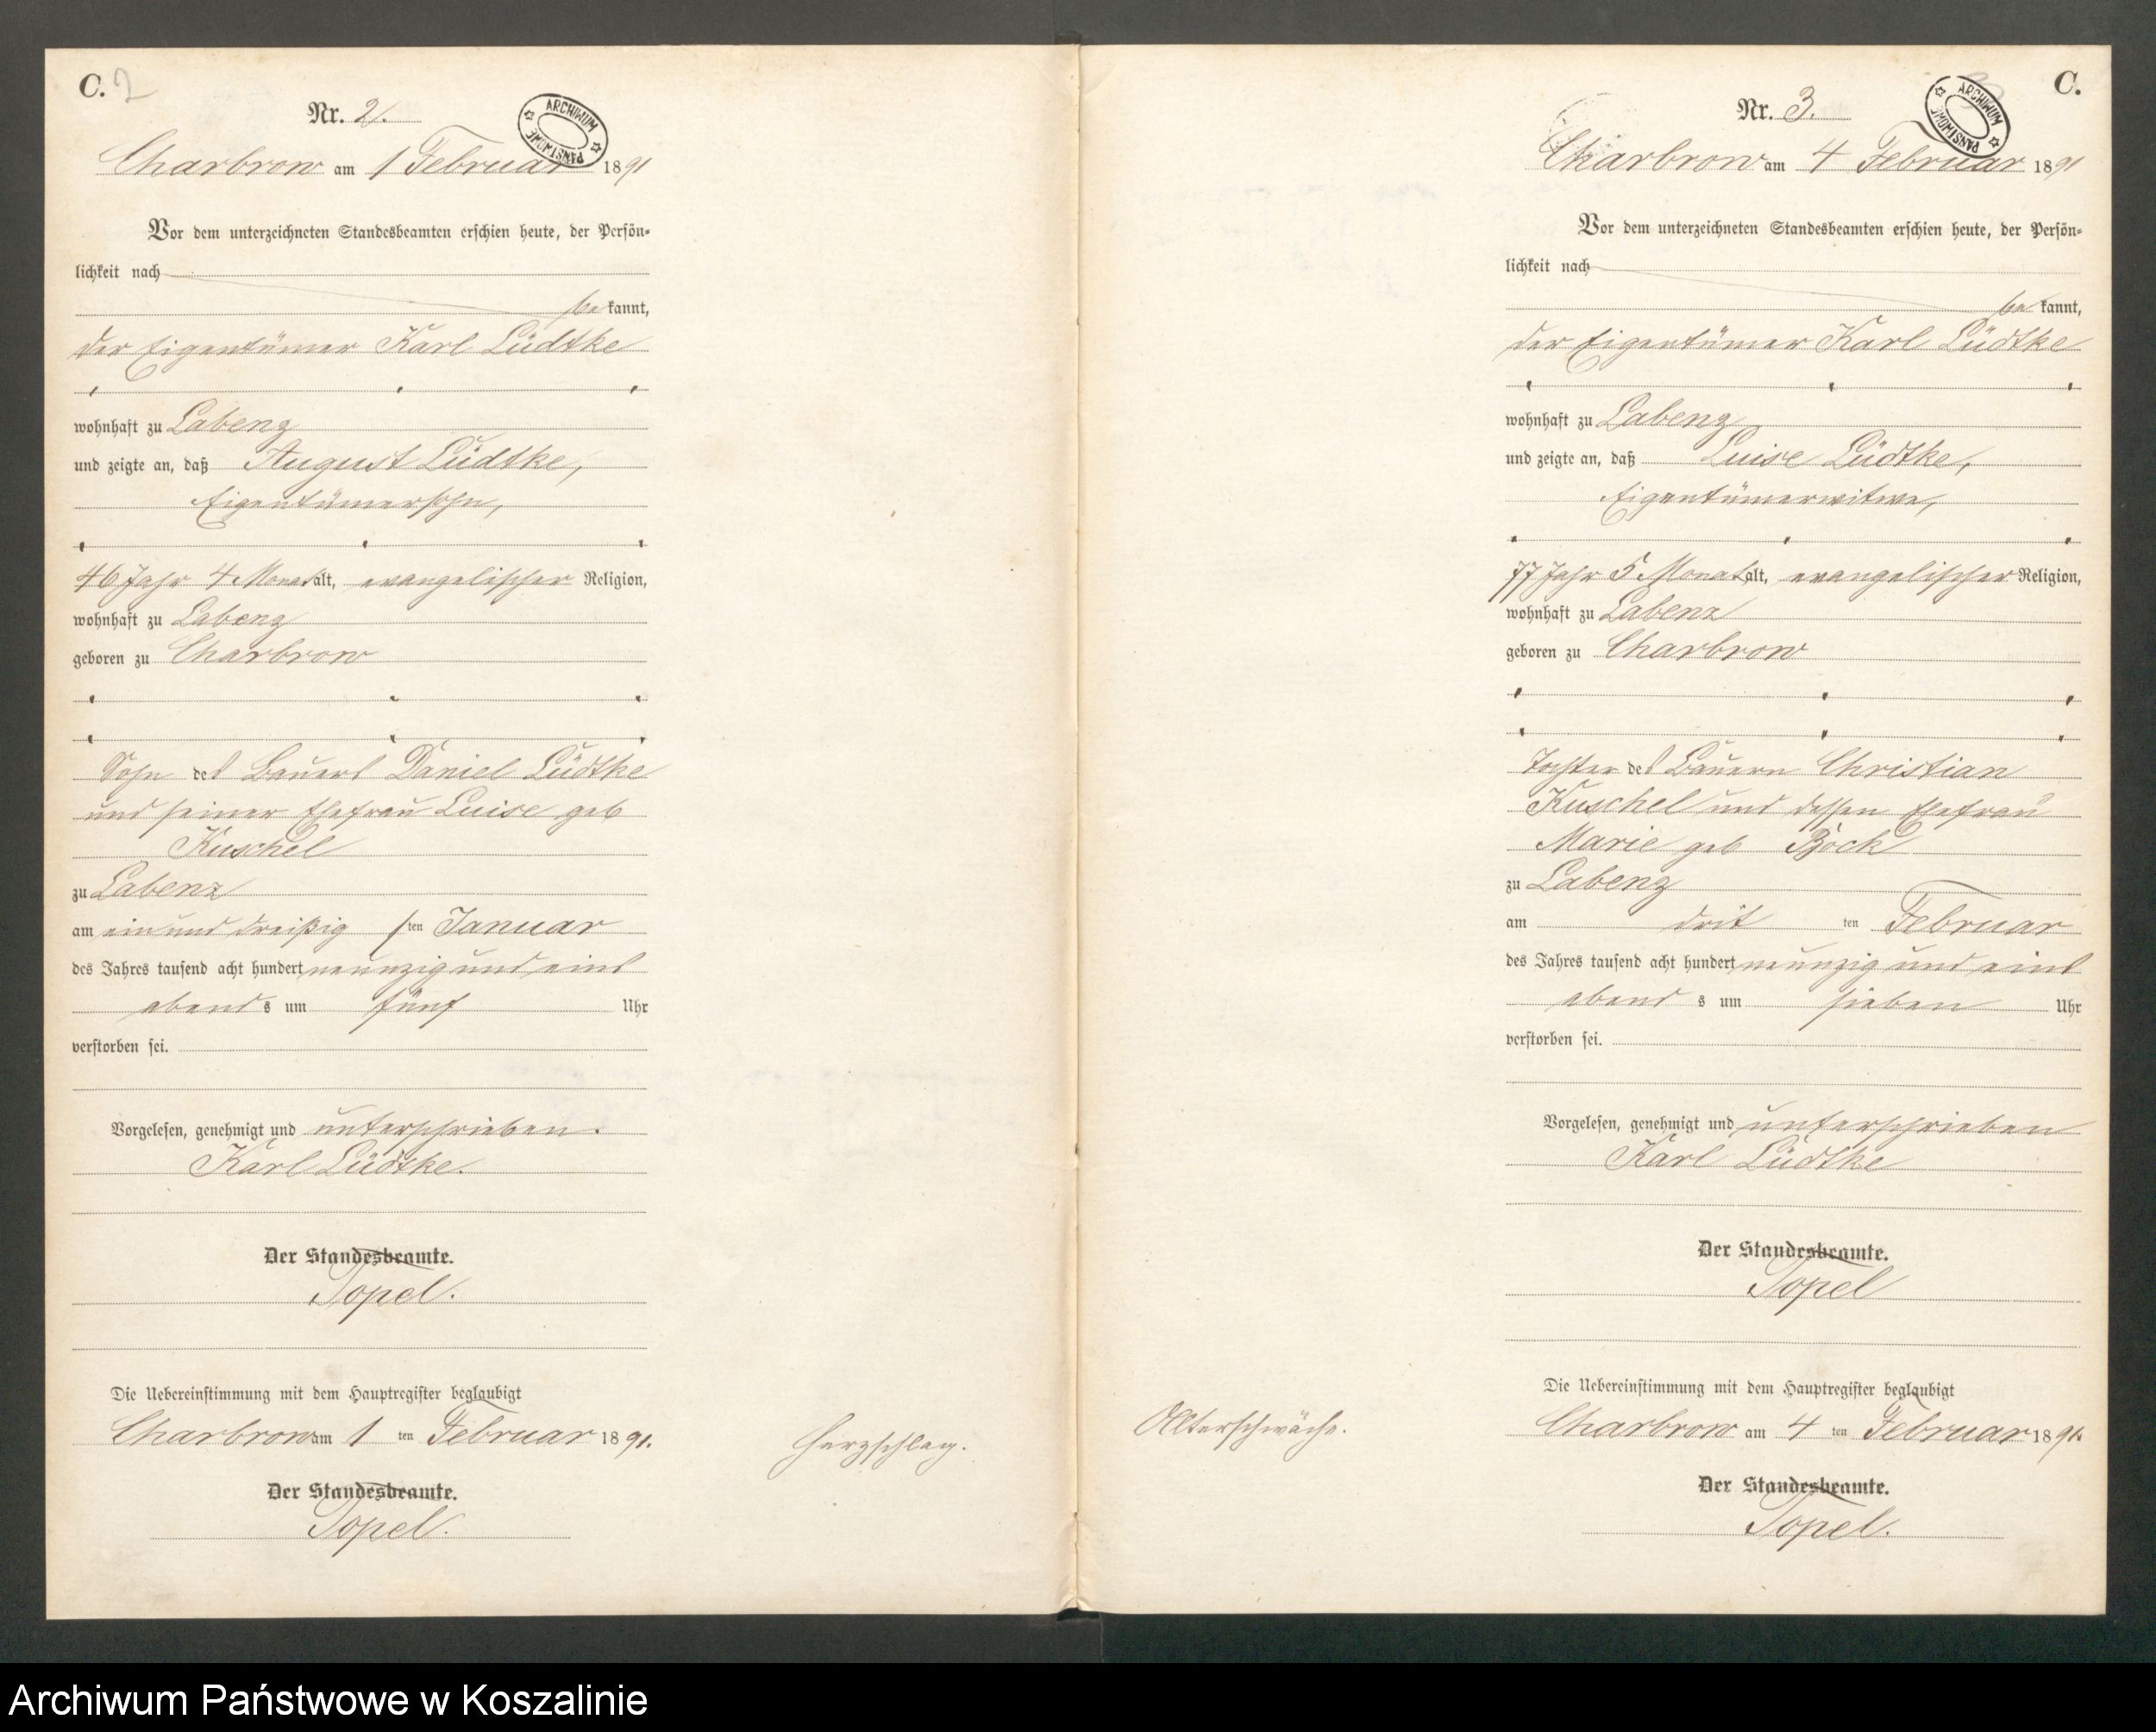 C. 2
Nr. 2.
ARCHIWUM PAŃSTWOWE
Charbrow am 1 Februar 1891
Vor dem unterzeichneten Standesbeamten erschien heute, der Persön-
lichkeit nach
be kannt,
der Eigentümer Karl Lüdtke
wohnhaft zu Labenz
und zeigte an, daß August Lüdtke,
Eigentümersohn,
46 Jahr 4 Monat alt, evangelischer Religion,
wohnhaft zu Labenz
geboren zu Charbrow
Sohn des Bauers Daniel Lüdtke
und seiner Ehefrau Luise geb
Kuschel
zu Labenz
am ein und dreißig sten Januar
des Jahres tausend acht hundert neunzig und eins
abend s um fünf Uhr
verstorben sei.
Vorgelesen, genehmigt und unterschrieben.
Karl Lüdtke.
Der Standesbeamte.
Topel.
Die Uebereinstimmung mit dem Hauptregister beglaubigt
Charbrow am 1 ten Februar 1891.
Der Standesbeamte.
Topel.
Herzschlag.
C.
Nr. 3.
ARCHIWUM PAŃSTWOWE
Charbrow am 4 Februar 1891
Vor dem unterzeichneten Standesbeamten erschien heute, der Persön-
lichkeit nach
be kannt,
der Eigentümer Karl Lüdtke
wohnhaft zu Labenz
und zeigte an, daß Luise Lüdtke,
Eigentümerwitwe,
77 Jahr 5 Monat alt, evangelischer Religion,
wohnhaft zu Labenz
geboren zu Charbrow
Tochter des Bauern Christian
Kuschel und dessen Ehefrau
Marie geb Bock
zu Labenz
am drit ten Februar
des Jahres tausend acht hundert neunzig und eins
abend s um sieben Uhr
verstorben sei.
Vorgelesen, genehmigt und unterschrieben
Karl Lüdtke
Der Standesbeamte.
Topel
Die Uebereinstimmung mit dem Hauptregister beglaubigt
Charbrow am 4 ten Februar 1891.
Der Standesbeamte.
Topel.
Alterschwäche.
Archiwum Państwowe w Koszalinie